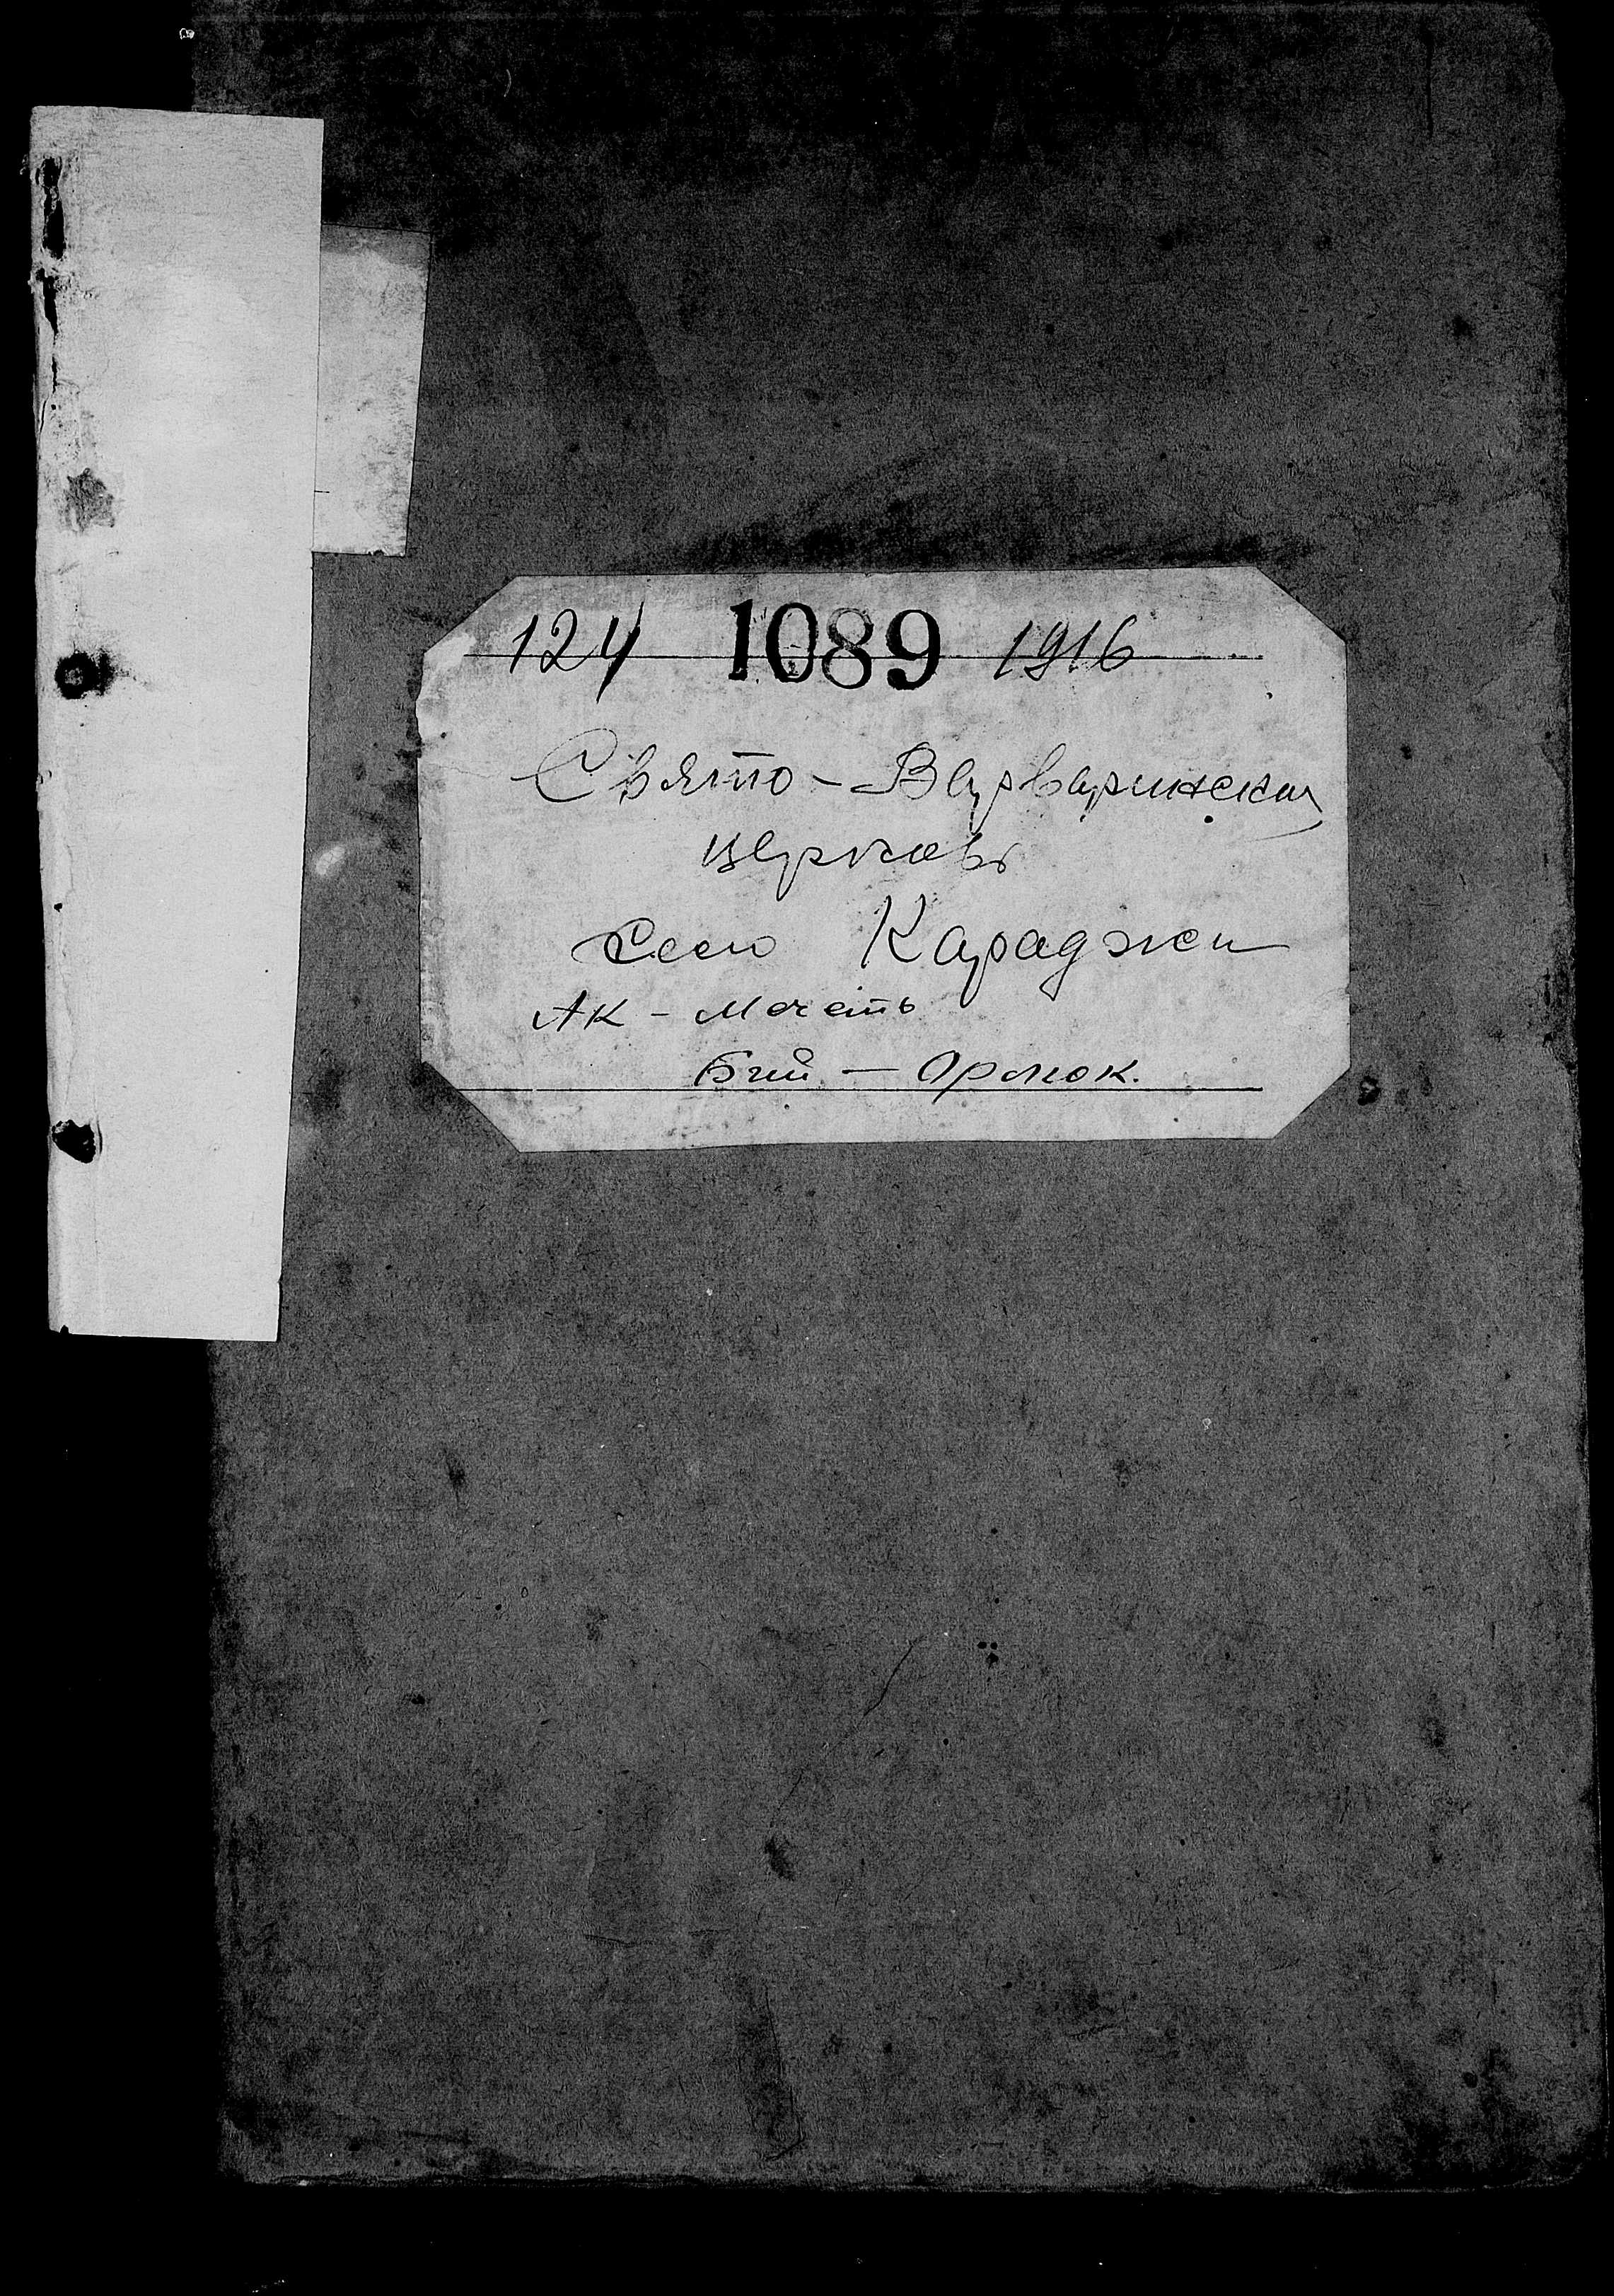 124 1089 1916
Свято-Варваринская
церковь
село Караджи
Ак-Мечеть
Бий-Орлюк.